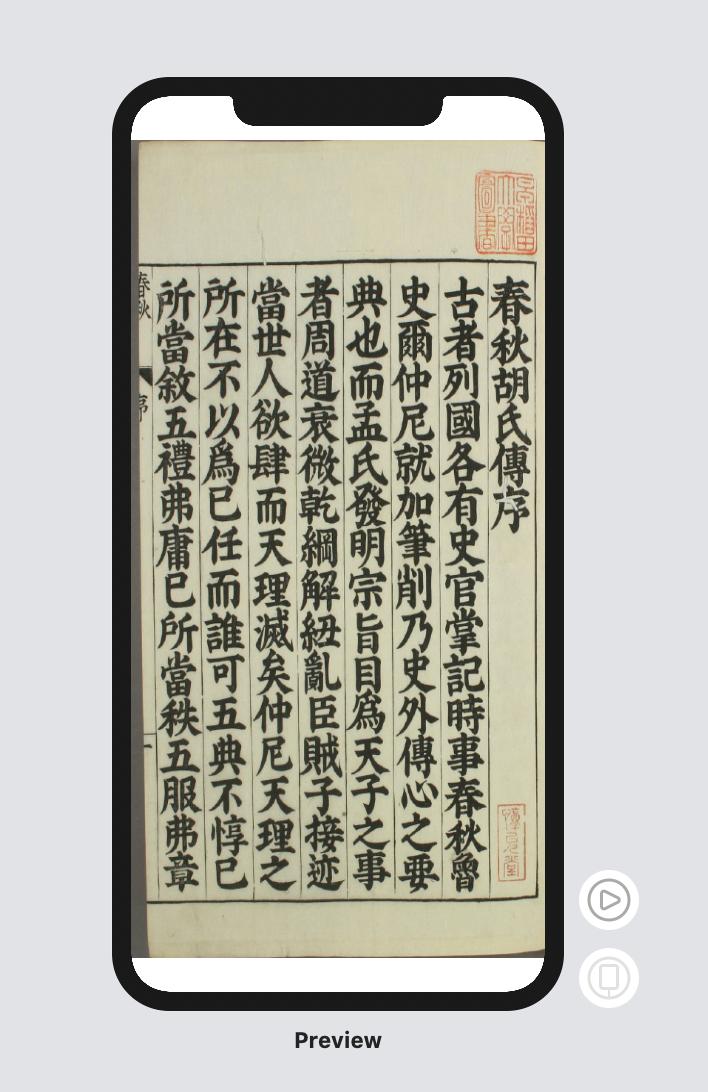 春秋胡氏傳序
古者列國各有史官掌記時事春秋魯
史爾仲尼就加筆削乃史外傳心之要
典也而孟氏發明宗旨目爲天子之事
者周道衰微乾綱解紐亂臣賊子接迹
當世人欲肆而天理滅矣仲尼天理之
所在不以爲已任而誰可五典不惇已
所當敘五禮弗庸已所當秩五服弗章
春秋
序
一
早稲田大學圖書
Preview